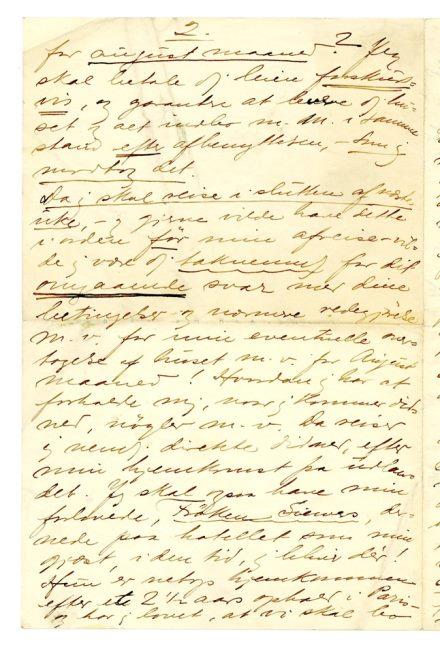 2.
for august maaned? Jeg
skal betale og leien forskuds-
vis, og garantere at levere og hu-
set og alt indbo m. M. i samme
stand efter afbenyttelsen, – som j
modtog det.
Da j skal reise i slutten af næste
uke, – og gjerne vilde have dette
i orden før min afreise – vil-
de j være dj taknemmelj for dit
omgaaende svar med dine
betingelser og nærmere redegjørelse
m. v. for min eventuelle over-
tagelse af huset m. v. for August
maaned! Hvordan j har at
forholde mj, naar j kommer did-
ned, nøgler m. v. Da reiser
j nemlj direkte didned, efter
min hjemkomst fra udlan-
det. Jeg skal ogsaa have min
forlovede, Frøken Siewers, der-
nede paa hotellet som min
gjæst, i den tid, j blir dér!
Hun er netop hjemkommen
efter et 2 1/2 aars ophold i Paris –
og har j lovet, at vi skal bo